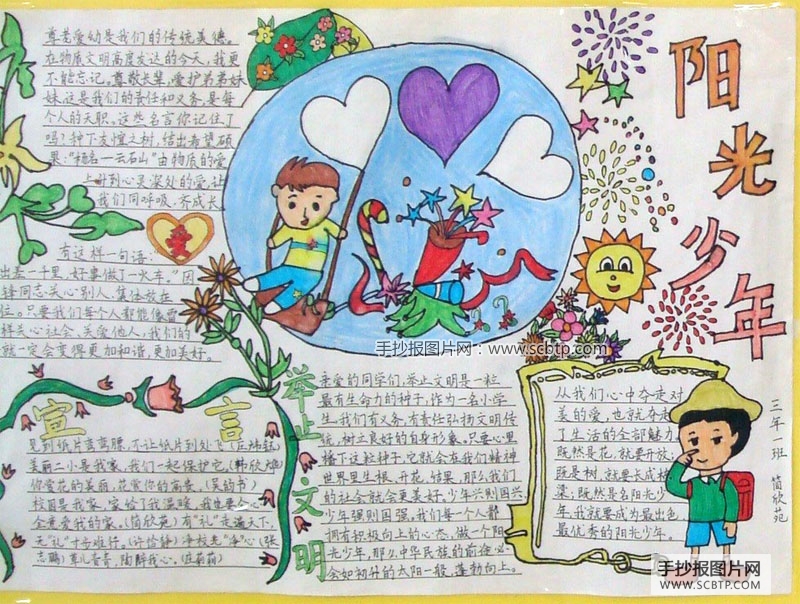 阳光少年
尊老爱幼是我们的传统美德。
在物质文明高度发达的今天,我更
不能忘记。尊敬长辈,爱护弟弟妹
妹,这是我们的责任和义务,是每
个人的天职。这些名言你记住了
吗?种下友谊之树,结出希望硕
果:"栖名一云石山"由物质的爱
上升到心灵深处的爱,让
我们同呼吸,齐成长
有这样一句语:
出差一千里,好事做了一火车。"因
锋同志关心别人,集体放在
位。只要我们每个人都能像雷
样关心社会,关爱他人,我们的
就一定会变得更加和谐,更加美好。
宣言
见到纸片弯弯腰,不让纸片到处飞(庄炜钰)
美丽二小是我家,我们一起保护它,(韩欣雄)
你爱花的美丽,花爱你的高贵。(吴钧书)
校园是我家,家给了我温暖,我也要全心
全意爱我的家。(简欣苑)有"礼"走遍天下,
无"礼"寸步难行。(许怡静)净校先"净"心(张
志鹏)尊儿 ,陶醉我心。(庄莉莉)
举止文明
亲爱的同学们,举止文明是一粒
最有生命力的种子,作为一名小学
生,我们有义务,有责任弘扬文明传
统,树立良好的自身形象。只要心里
播下这粒种子,它就会在我们精神
世界里生根、开花、结果,那么我们
的社会就会更美好。少年兴则国兴,
少年强则国强。我们每个人都
拥有积极向上的心态,做一个阳
光少年,那么,中华民族的前途必
会如初升的太阳一般,蓬勃向上。
从我们心中夺走对
美的爱,也就夺走
了生活的全部魅力
既然是花,就要开放;
既是树,就要长成栋
梁,既然是名阳光少
年,我就要成为最出色、
最优秀的阳光少年。
三年一班 简欣苑
手抄报图片网:www.scbtp.com
手抄报图片网
WWW.SCBTP.COM